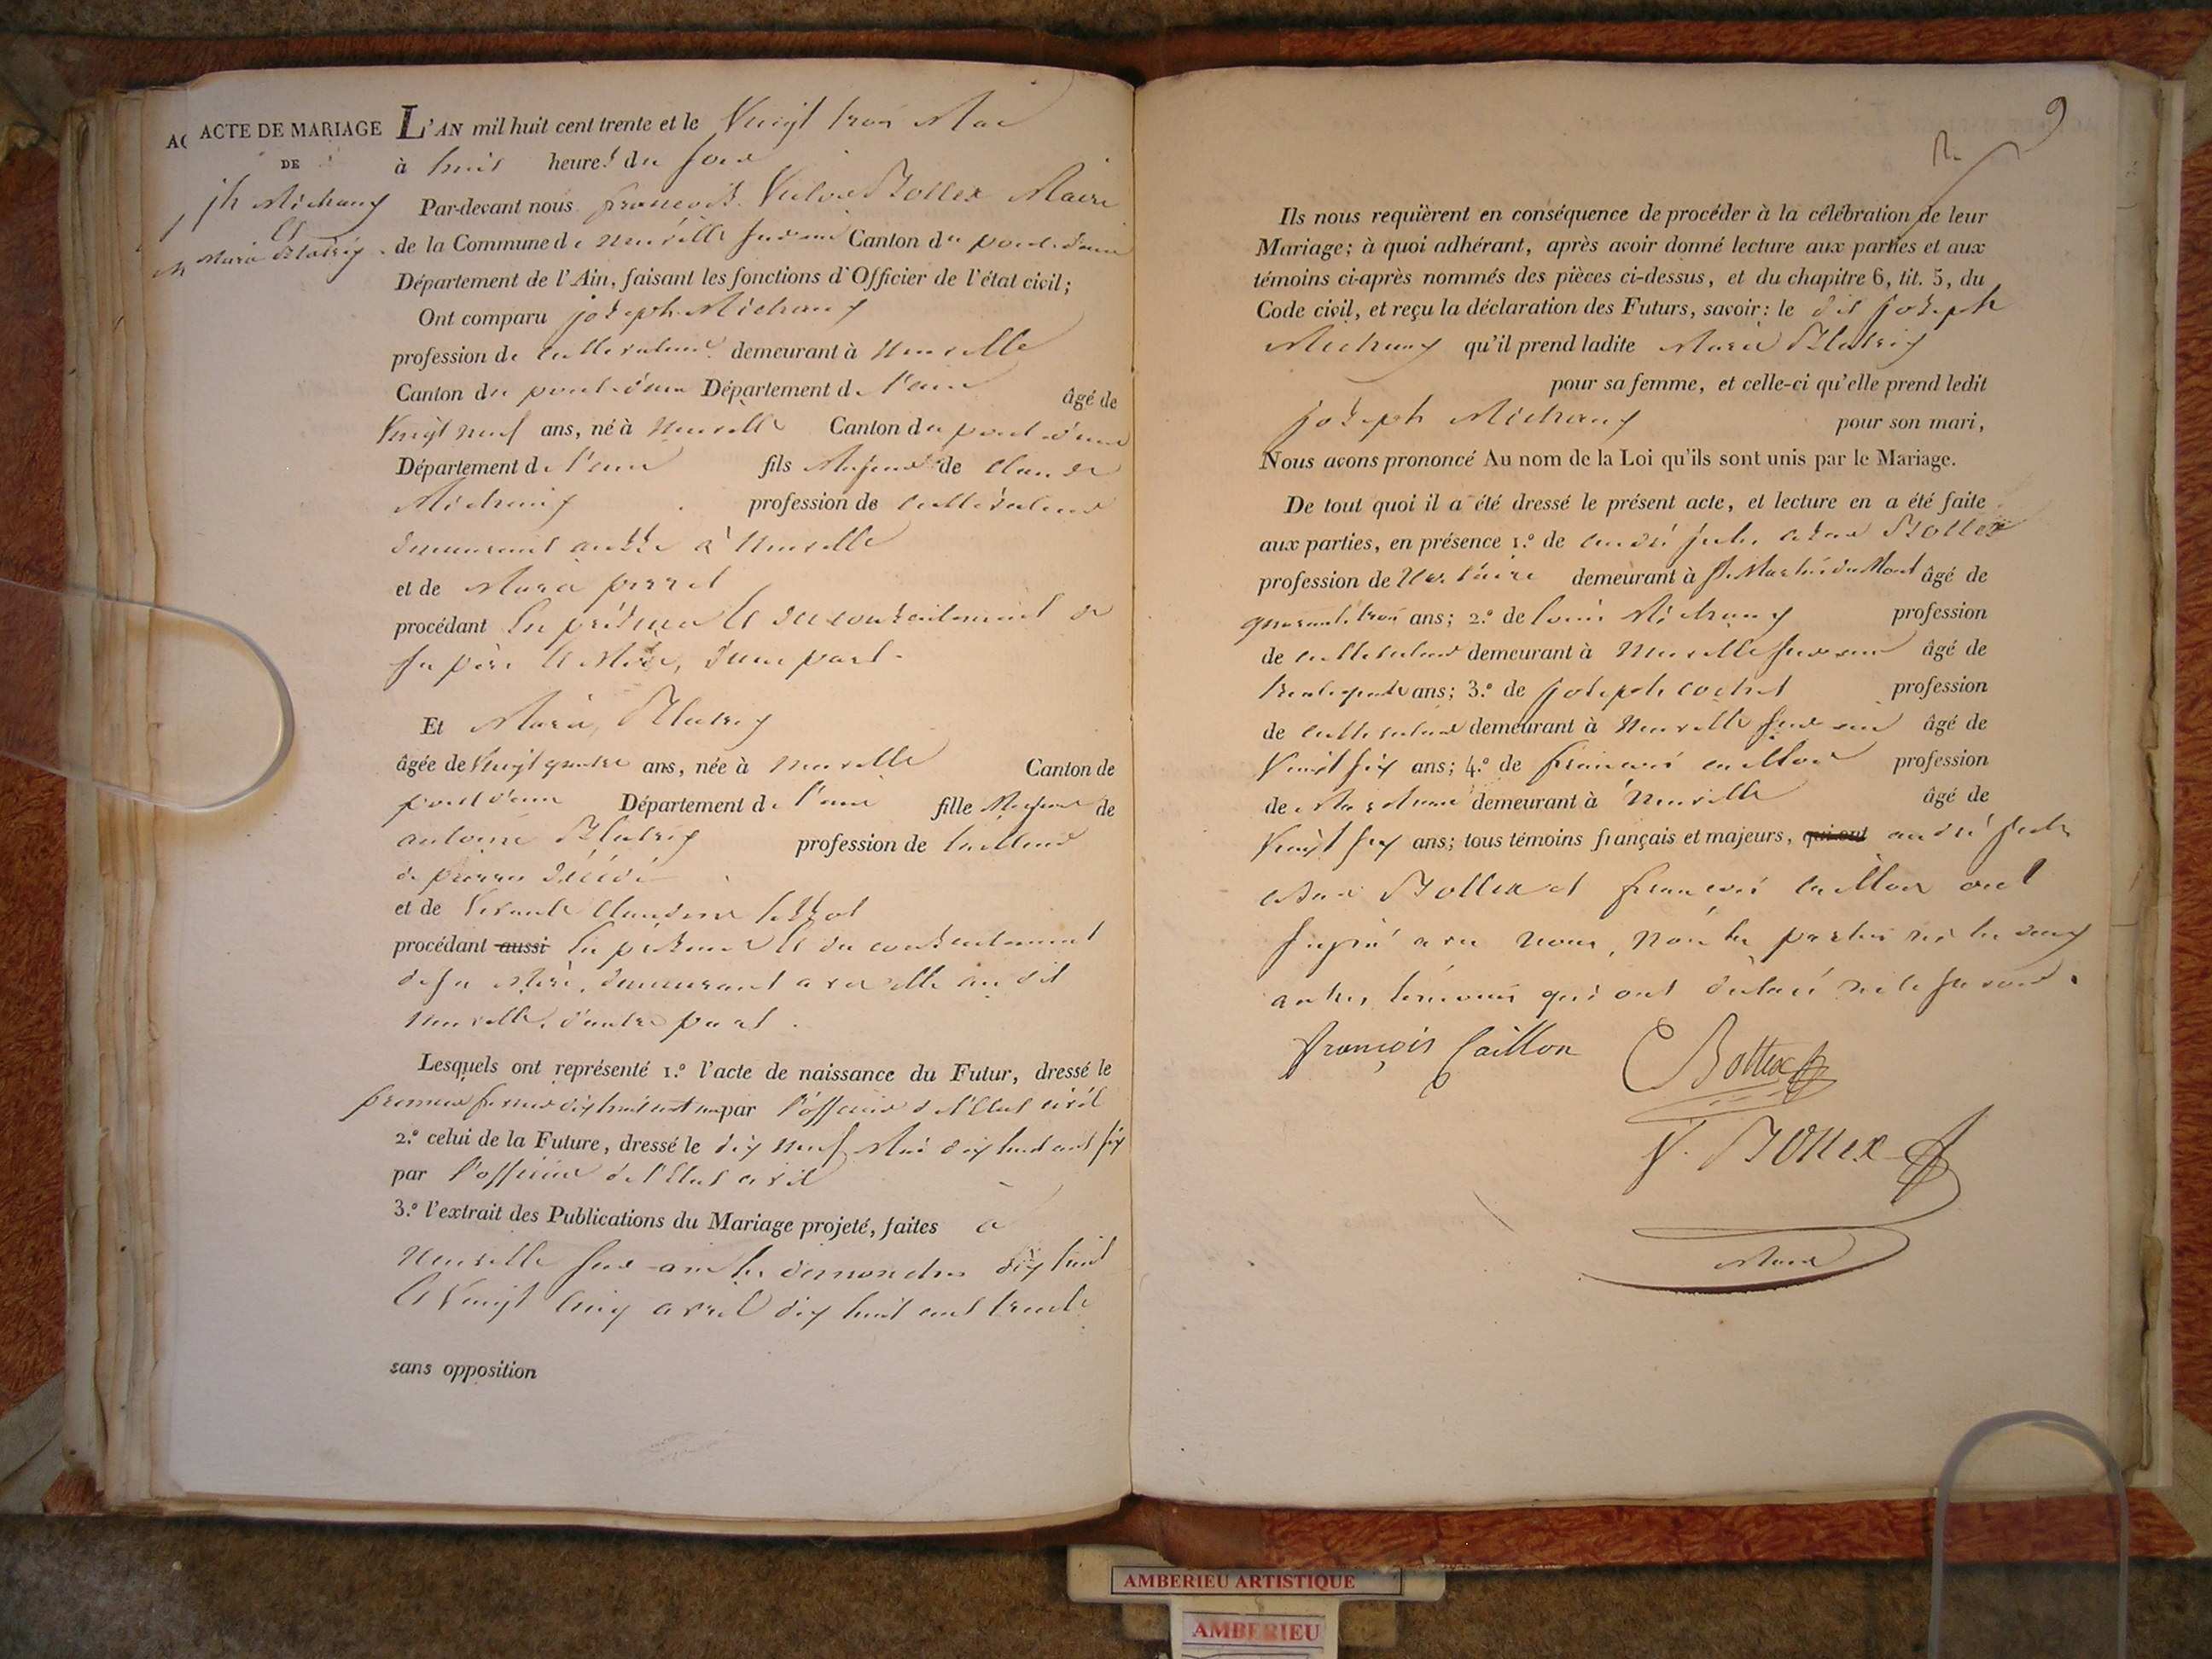 ACTE DE MARIAGE
DE
jh Michaux
et
Marie Blatrix
L'AN mil huit cent trente et le Vingt trois Mai
à huit heures du soir
Par-devant nous françois Victor Bottex Maire
de la Commune de neuville sur ain Canton du pont d'ain
Département de l'Ain, faisant les fonctions d'Officier de l'état civil;
Ont comparu joseph Michaux
profession de cultivateur demeurant à neuville
Canton du pont d'ain Département de l'ain âgé de
Vingt neuf ans, né à neuville Canton du pont d'ain
Département de l'ain fils Majeur de Claude
Michaux profession de cultivateur
demeurant aussi à neuville
et de Marie perret
procédant en présence et du consentement de
ses père et Mère, d'une part.
Et Marie Blatrix
âgée de Vingt quatre ans, née à neuville Canton de
pont d'ain Département de l'ain fille Majeure de
antoine Blatrix profession de tailleur
de pierres décédé
et de Claudine
procédant aussi en présence et du consentement
de sa Mère, demeurant avec elle au dit
neuville, d'autre part.
Lesquels ont représenté 1.º l'acte de naissance du Futur, dressé le
premier dix huit cent un par l'officier de l'Etat civil
2.º celui de la Future, dressé le dix neuf Mai dix huit cent six
par l'officier de l'Etat civil
3.º l'extrait des Publications du Mariage projeté, faites à
neuville sur ain les dimanches dix huit
et Vingt cinq avril dix huit cent trente
sans opposition
9
Ils nous requièrent en conséquence de procéder à la célébration de leur
Mariage; à quoi adhérant, après avoir donné lecture aux parties et aux
témoins ci-après nommés des pièces ci-dessus, et du chapitre 6, tit. 5, du
Code civil, et reçu la déclaration des Futurs, savoir: le dit joseph
Michaux qu'il prend ladite Marie Blatrix
pour sa femme, et celle-ci qu'elle prend ledit
joseph Michaux pour son mari,
Nous avons prononcé Au nom de la Loi qu'ils sont unis par le Mariage.
De tout quoi il a été dressé le présent acte, et lecture en a été faite
aux parties, en présence 1.º de andré jules Bottex
profession de Notaire demeurant à St Martin du Mont âgé de
quarante trois ans; 2.º de louis Michaux profession
de cultivateur demeurant à neuville sur ain âgé de
trente quatre ans; 3.º de joseph cochet profession
de cultivateur demeurant à neuville sur ain âgé de
Vingt six ans; 4.º de françois caillon profession
de demeurant à neuville âgé de
Vingt six ans; tous témoins français et majeurs, qui ont andré jules
Bottex et françois caillon ont
signé avec nous, non les parties ni les deux
autres témoins qui ont déclaré ne le savoir.
françois Caillon
C Bottex
V. Bottex
Maire
AMBERIEU ARTISTIQUE
AMBERIEU